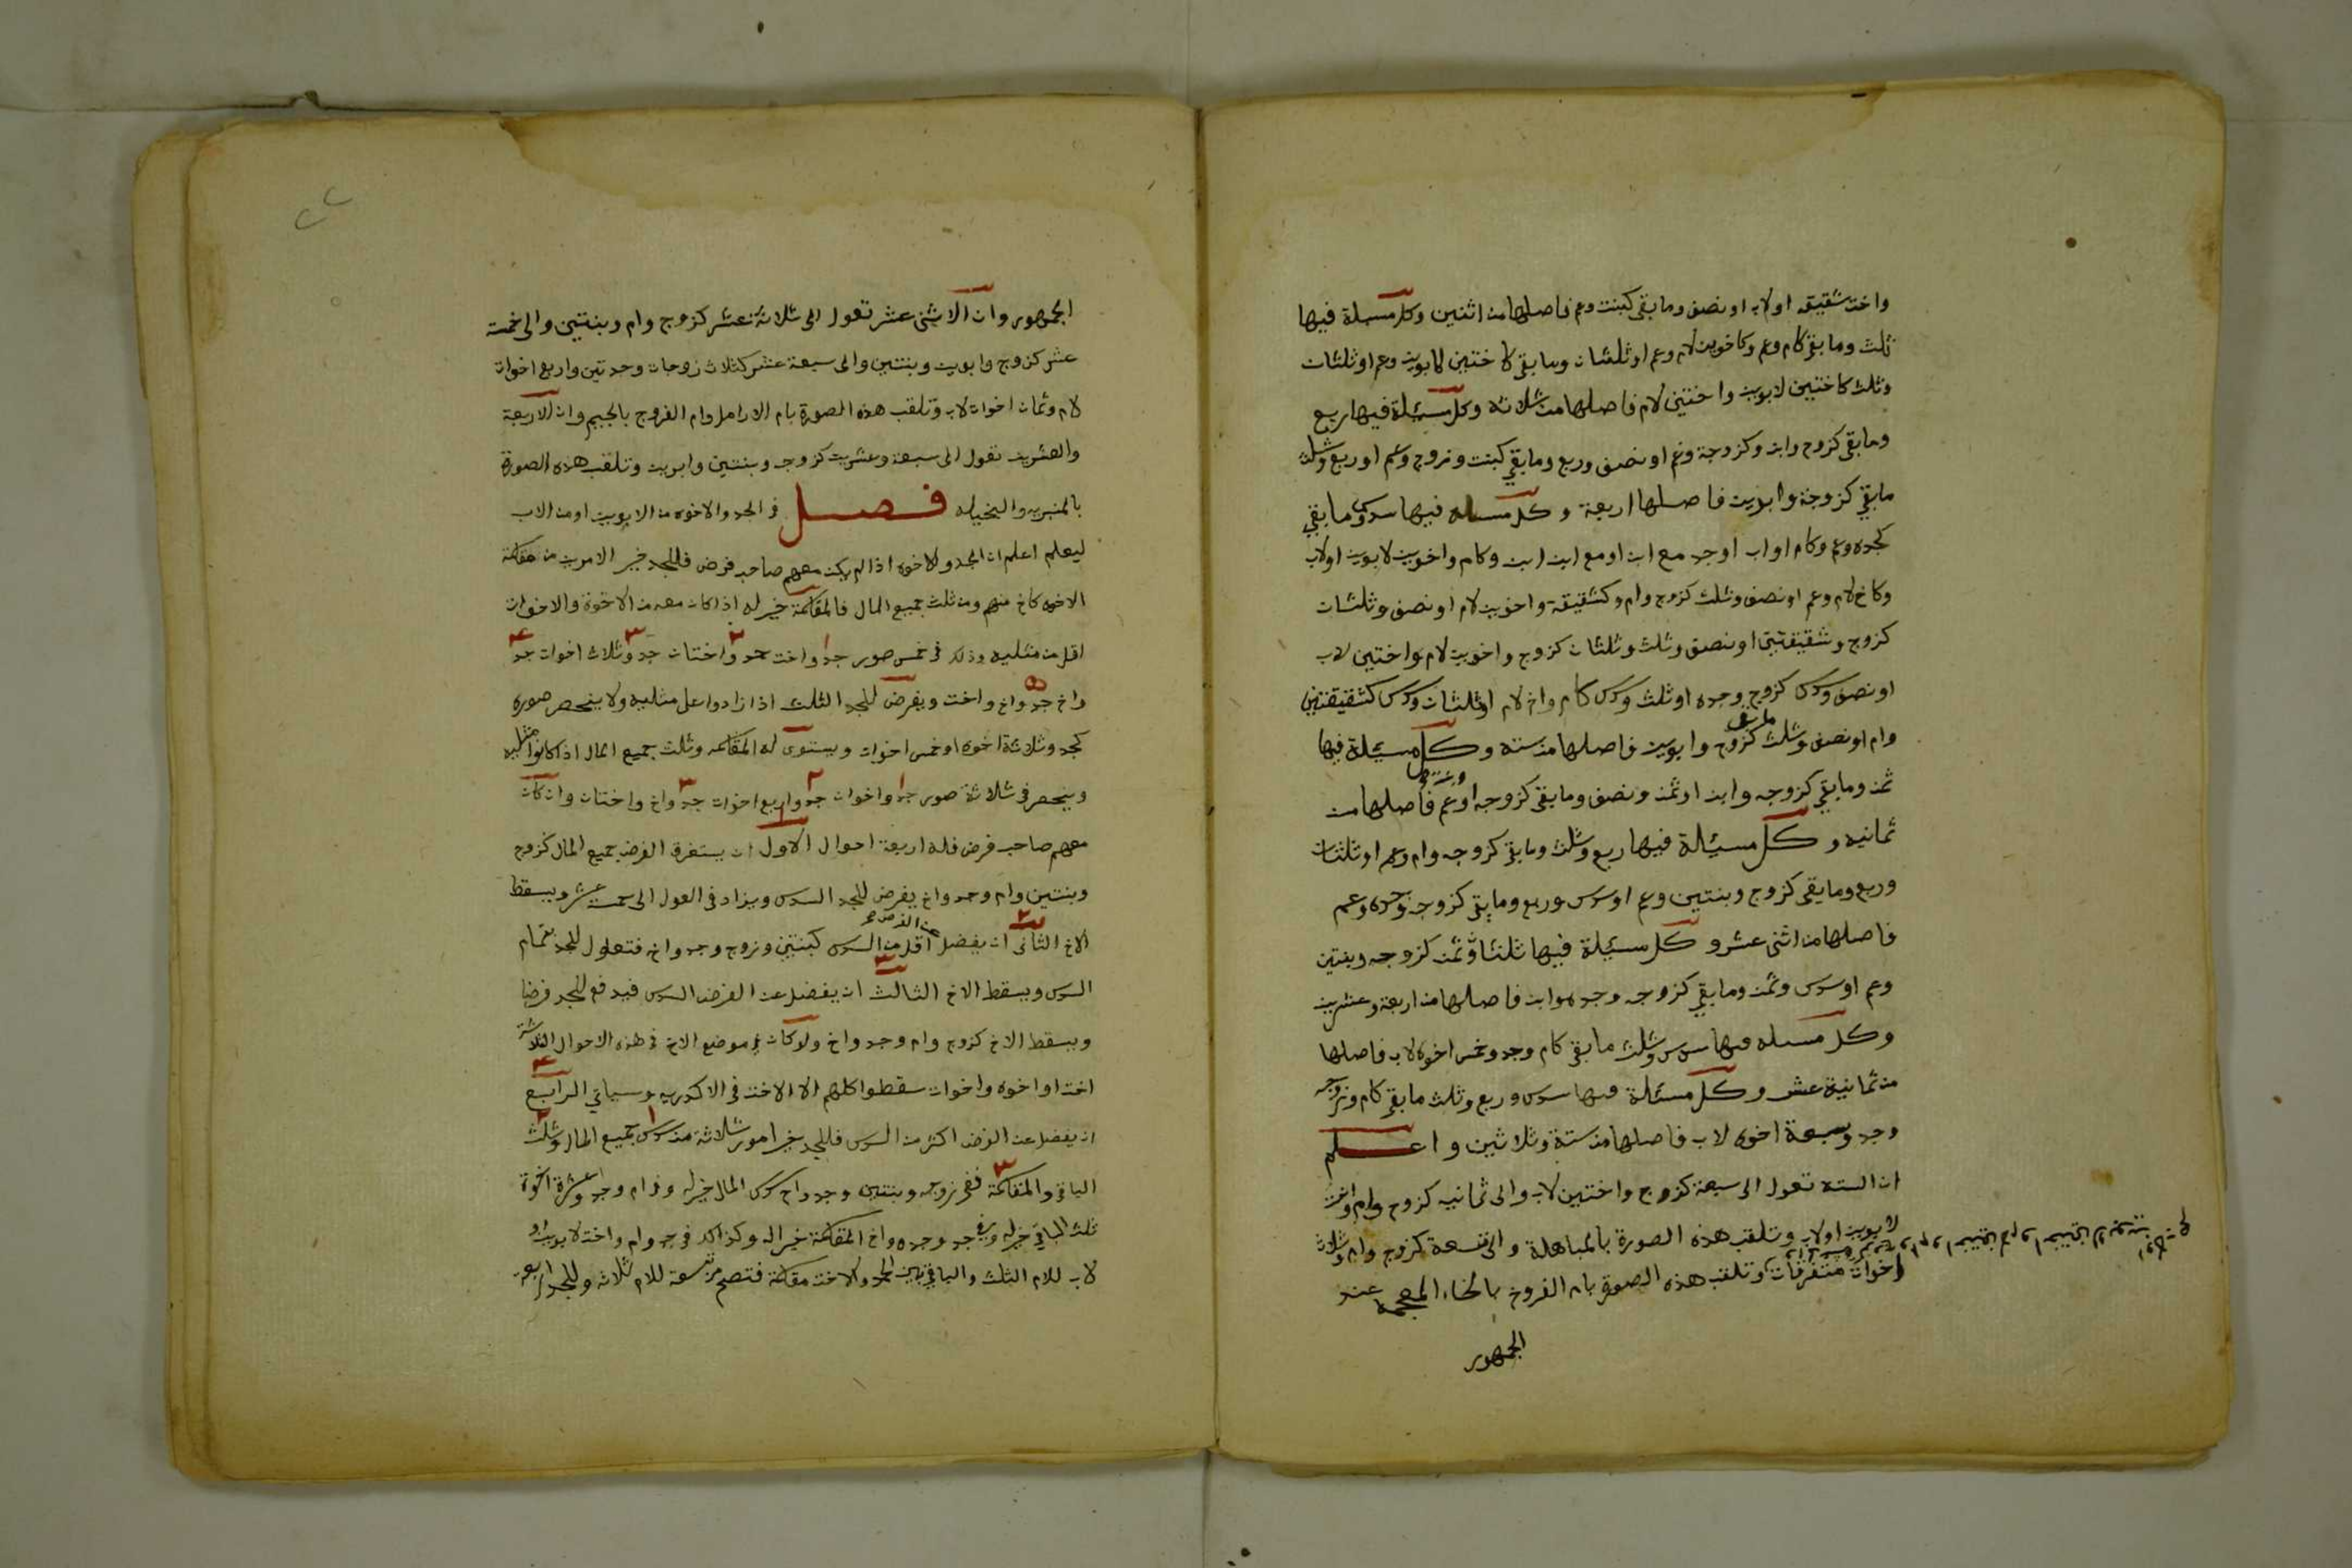 واخت شقيقه اولاب اونصف ومابقى كبنت وعم فاصلها من اثنين وكل مسيلة فيها
ثلث ومابقى كام وعم وكاخوين لام وعم اوثلثان ومابقى كاختين لابوين وعم اوثلثان
وثلث كاختين لابوين واختين لام فاصلها من ثلاثه وكل مسيئلة فيها ربع
ومابقى كزوج وابن وكزوجة وعم اونصف وربع ومابقي كبنت وزوج وعم اوربع وثلث
مابقي كزوجة وابوين فاصلها اربعة وكل مسىله فيها سدس ومابقي
كجده وعم وكام اواب اوجد مع ابن اومع ابن ابن وكام واخوين لابوين اولاب
وكاخ لام وعم اونصف وثلث كزوج وام وكشقيقة واخوين لام اونصف وثلثان
كزوج وشقيقتين اونصف وثلث وثلثان كزوج واخوين لام واختين لاب
اونصف وسدس كزوج وجده اوثلث وسدس كام واخ لام اوثلثان وسدس كشقيقتين
وام اونصف وثلث مابقى كزوج وابوين فاصلها من سته وكل مسيئلة فيها
ثمن ومابقي كزوجه وابن اوثمن ونصف ومابقى كزوجه وبنت وعم فاصلها من
ثمانيه وكل مسيئلة فيها ربع وثلث ومابقى كزوجه وام وعم اوثلثان
وربع ومابقى كزوج وبنتين وعم اوسدس وربع ومابقى كزوجه وجده وعم
فاصلها من اثنى عشر وكل سيئلة فيها ثلثان وثمن كزوجه وبنتين
وعم اوسدس وثمن ومابقي كزوجه وجده وابن فاصلها من اربعة وعشرين
وكل مسىله فيها سدس وثلث مابقى كام وجد وخمس اخوه لاب فاصلها
من ثمانية عشر وكل مسئلة فيها سدس وربع وثلث مابقى كام وزوجه
وجد وسبعة اخوه لاب فاصلها من ستة وثلاثين واعلم
ان السته تعول الى سبعة كزوج واختين لاب والى ثمانيه كزوج وام واخت
لابوين اولاب وتلقب هذه الصورة بالمباهلة والى تسعة كزوج وام وثلاث
اخوات متفرقات وتلقب هذه الصورة بام الفروخ بالخاء المعجمة عند
الجمهور
الجمهور وان الاثنى عشر تعول الى ثلاثة عشر كزوج وام وبنتين والى خمسة
عشر كزوج وابوين وبنتين والى سبعة عشر كثلاث زوجات وجدتين واربع اخوات
لام وثمان اخوات لاب وتلقب هذه الصورة بام الارامل وام الفروج بالجيم وان الاربعة
والعشرين تعول الى سبعة وعشرين كزوجه وبنتين وابوين وتلقب هذه الصورة
بالمنبريه والبخيله فصل في الجد والاخوه من الابوين اومن الاب
ليعلم اعلم ان الجد والاخوه اذا لم يكن معهم صاحب فرض فللجد خير الامرين من مقاسمة
الاخوه كاخ منهم ومن ثلث جميع المال فالمقاسمة خير له اذا كان معه من الاخوة والاخوات
اقل من مثليه وذلك في خمس صور جد واخت جد واختان جد وثلاث اخوات جد
واخ جد واخ واخت ويفرض للجد الثلث اذا زادوا على مثليه ولا ينحصر صوره
كجد وثلاثة اخوه اوخمس اخوات ويستوى له المقاسمه وثلث جميع المال اذا كانوا مثليه
وينحصر في ثلاثة صور جد واخوان جد واربع اخوات جد واخ واختان وان كان
معهم صاحب فرض فله اربعة احوال الاول ان يستغرق الفرض جميع المال كزوج
وبنتين وام وجد واخ يفرض للجد السدس ويزاد في العول الى خمسة عشر ويسقط
الاخ الثانى ان يفضل عن الفرض اقل من السدس كبنتين وزوج وجد واخ فتعول للجد بتمام
السدس ويسقط الاخ الثالث ان يفضل عن الفرض السدس فيدفع للجد فرضا
ويسقط الاخ كزوج وام وجد واخ ولو كان في موضع الاخ في هذه الاحوال الثلاثة
اخت او اخوه واخوات سقطوا كلهم الا الاخت في الاكدريه وسياتي الرابع
ان يفضل عن الفرض اكثر من السدس فللجد خير امور ثلاثة من سدس جميع المال وثلث
الباقى والمقاسمة ففى زوجه وبنتين وجد واخ سدس المال خير له وفى ام وجد وعشرة اخوة
ثلث الباقي خير له وفى جد وجده واخ المقاسمة خير له وكذالك في جد وام واخت لابوين او
لاب للام الثلث والباقي بين الجد والاخت مقاسمة فتصح من تسعة للام ثلاثه وللجد اربعة